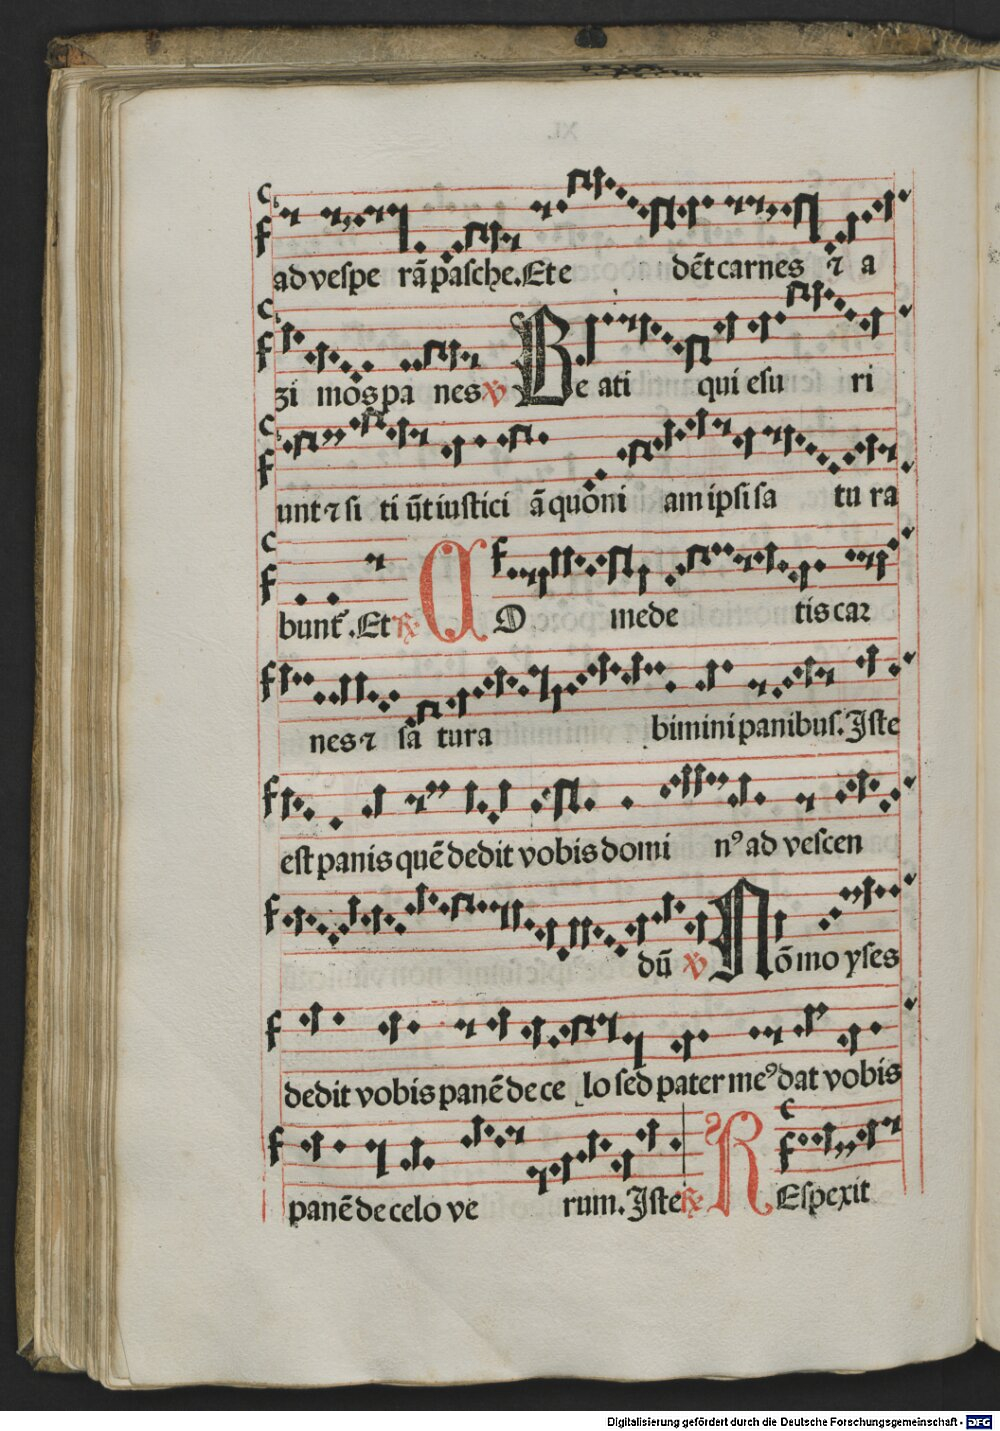 ad vespe rā pasche. Et e dēt carnes ⁊ a
zi mos pa nes ℣ Be ati qui esu ri
unt ⁊ si ti ūt iustici ā quoni am ipsi sa tu ra
bunt᷑. Et ℟ C O mede tis car
nes ⁊ sa tura bimini panibus. Iste
est panis quē dedit vobis domi nꝰ ad vescen
dū ℣ Nō moyses
dedit vobis panē de ce lo sed pater meꝰ dat vobis
panē de celo ve rum. Iste ℟ REspexit
Digitalisierung gefördert durch die Deutsche Forschungsgemeinschaft - DFG